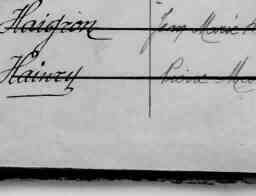 Haigron Jean Marie
Hainry Pierre Marie